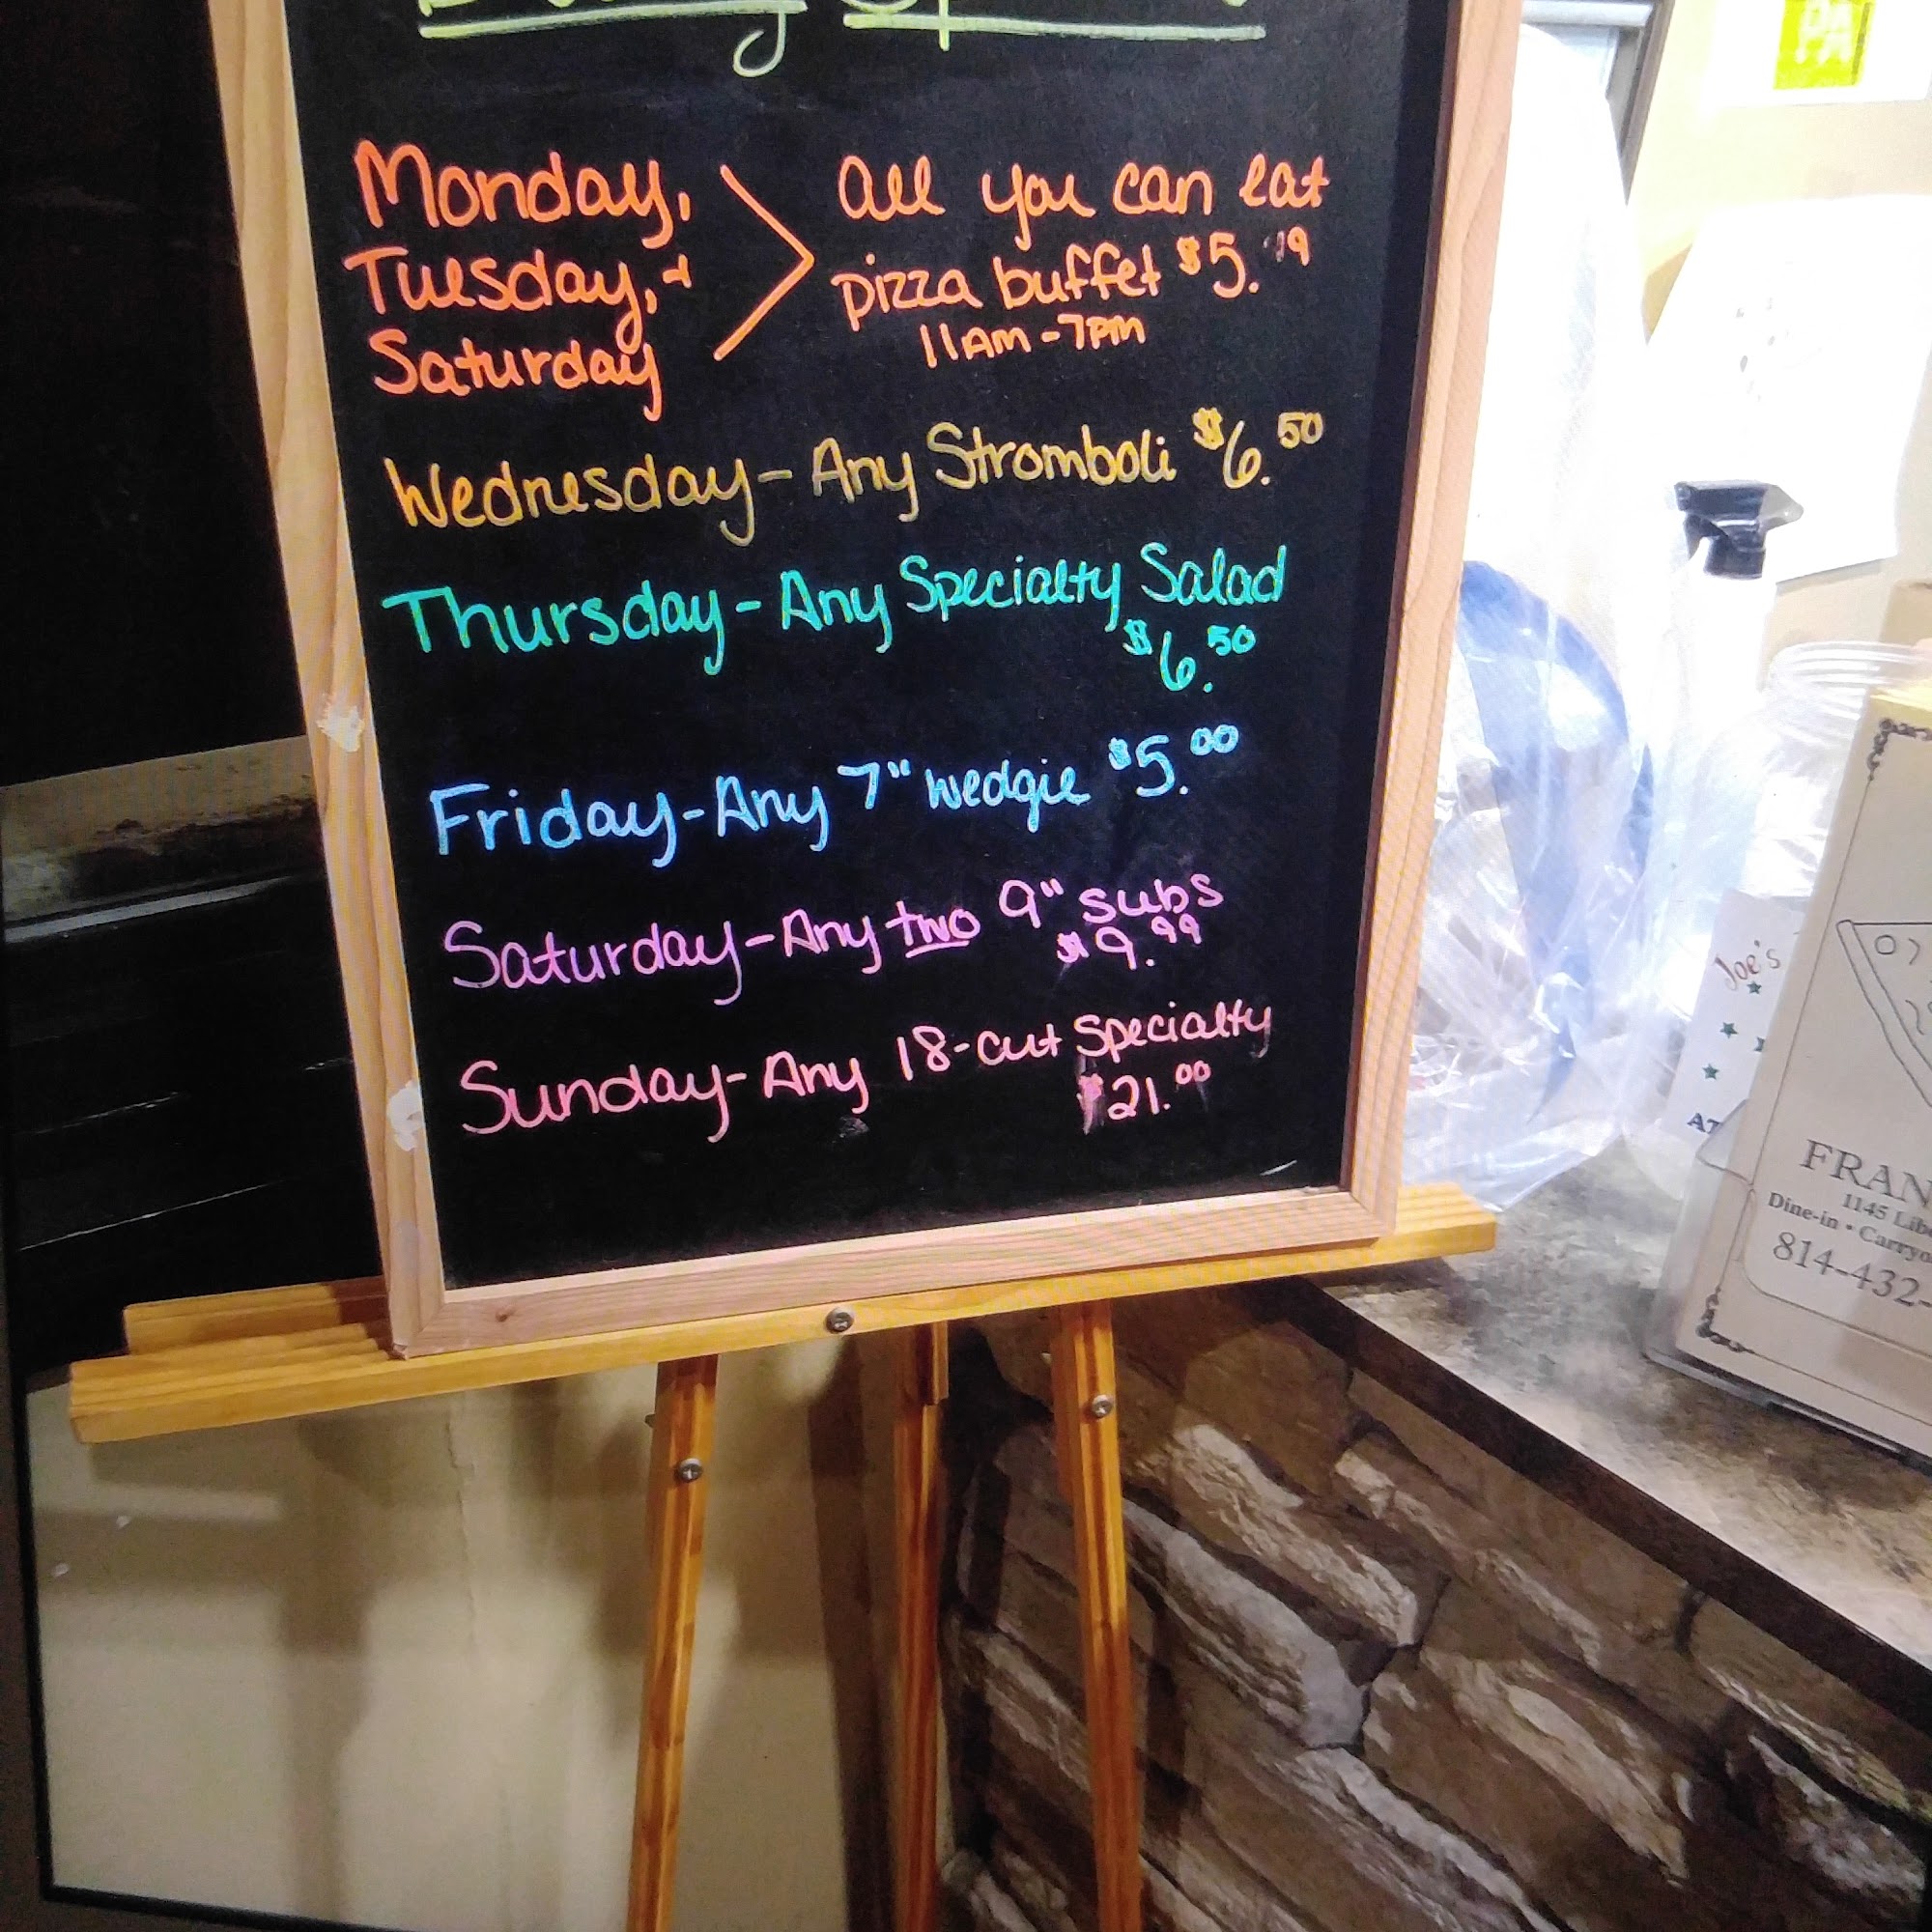 Monday,
Tuesday, &
Saturday
all you can eat
pizza buffet $5.
11AM - 7PM
Wednesday - Any Stromboli $6.50
Thursday - Any Specialty Salad
$6.50
Friday - Any 7" wedgie $5.00
Saturday - Any two 9" subs
$9.99
Sunday - Any 18-cut Specialty
$21.00
PA
Joe's
FRAN
1145 Lib
Dine-in • Carryo
814-432-